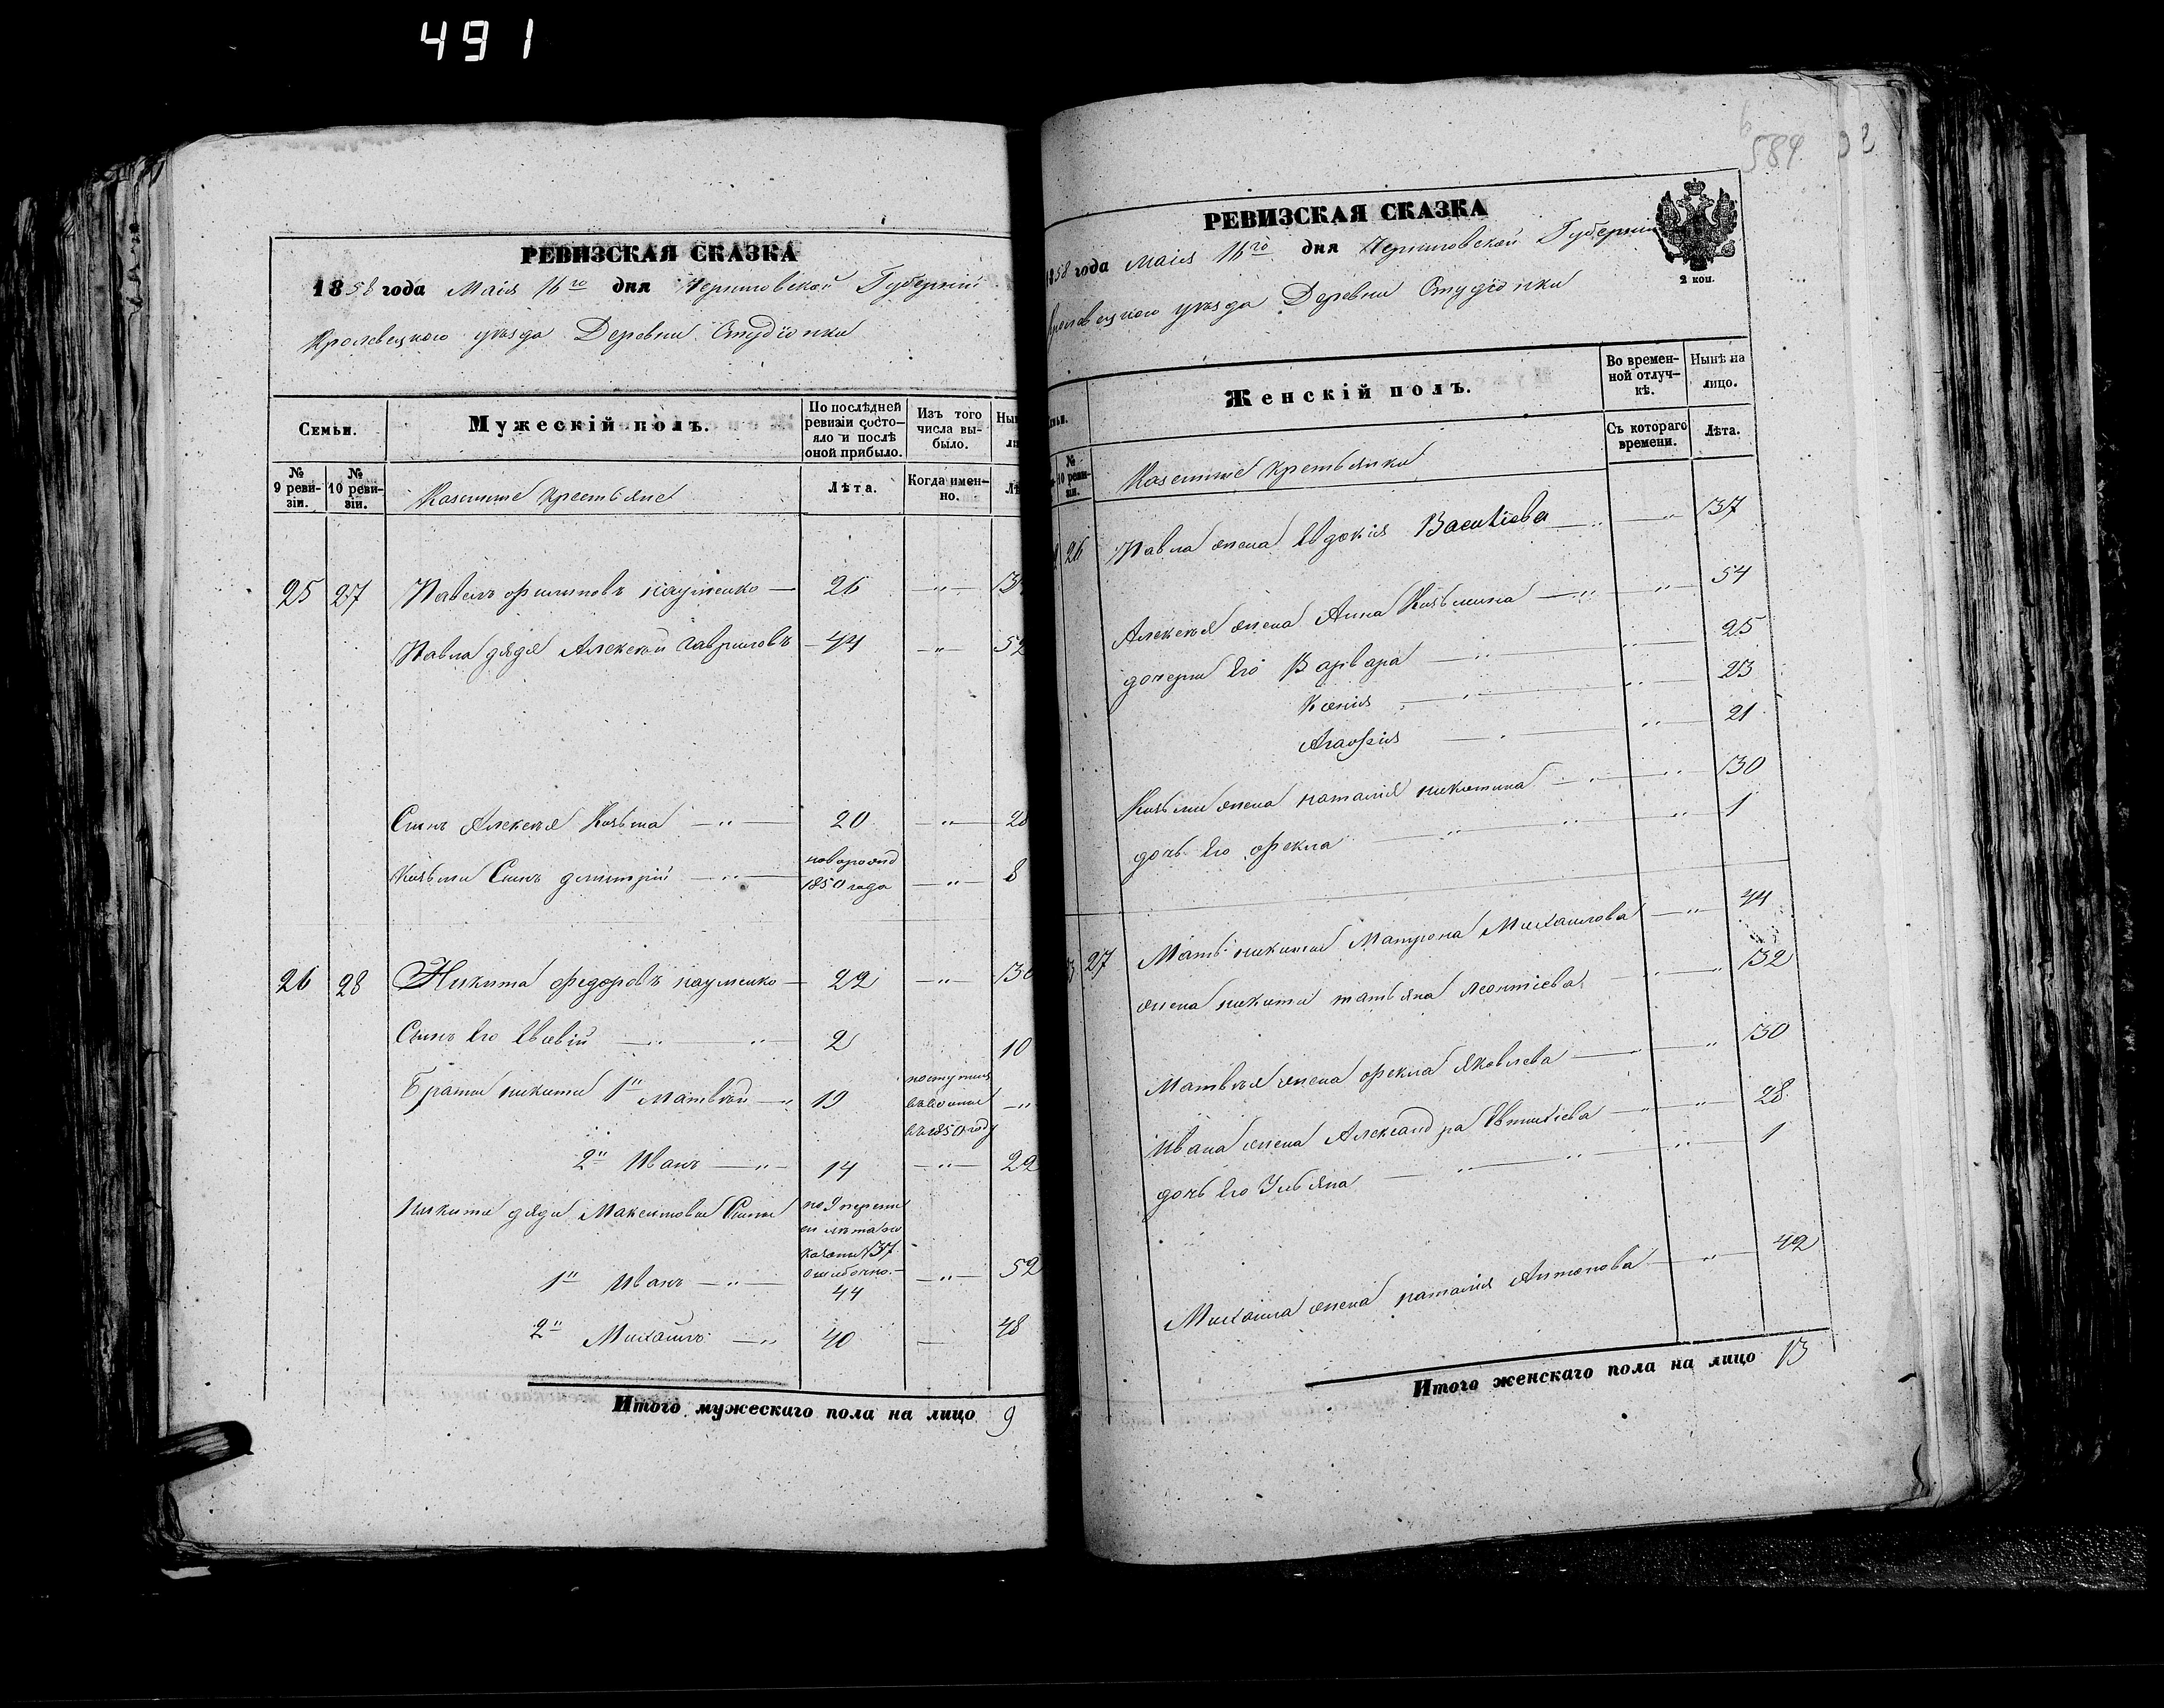 491
РЕВИЗСКАЯ СКАЗКА
1858 года Маія 16го дня Черниговской Губерніи
Кролевецкого уѣзда Деревни Студіонки
Семьи.
Мужескій полъ.
По послѣдней ревизіи состо-
яло и послѣ
оной прибыло.
Изъ того
числа вы-
было.
№ 9 реви-
зіи.
№ 10 реви-
зіи.
Казенные крестьяне
Лѣта.
Когда имен-
но.
25 27 Павелъ филиповъ науменко — 26 —"—
Павла дядя Алексѣй гавриловъ — 44 —"— 52
Сынъ Алексѣя Козьма —"— 20 —"— 28
Козьми Сынъ дмитрій —"— новорожд
1850 года —"— 8
26 28 Никита федоровъ науменко — 22 —"—
Сынъ Его Евсевій —"— 2 10
Братья никиты 1й Матвѣй —"— 19 —"—
въ 1850 году
2й Иванъ —"— 14 —"— 22
Никиты дяди Максимовы Сыны
1й Иванъ —"— ошибочно.— 44 —"— 52
2й Михайлъ —"— 40 — 48
Итого мужескаго пола на лицо 9
584
РЕВИЗСКАЯ СКАЗКА
1858 года Маія 16го дня Черниговской Губерніи
2 коп.
Кролевецкого уѣзда Деревни Студіонки
Женскій полъ.
Во времен-
ной отлуч-
кѣ.
Нынѣ на
лицо.
Съ котораго
времени.
Лѣта.
№ 10 реви-
зіи.
Казенные крестьянки
26 Павла жена Евдокія Василіева —"— 37
Алексѣя жена Анна Козьмина —"— 54
дочери Его Варвара —"— 25
Ксенія —"— 23
Агафія —"— 21
Козьми жена наталія никитина —"— 30
дочь Его фекла —"— 1
27 Мать никиты Матрона Михаилова —"— 44
жена никиты татьяна леонтіева —"— 32
Матвѣя жена фекла яковлева —"— 30
Ивана жена Александра —"— 28
дочь Его Ульяна —"— 1
Михаила жена наталія Антонова —"— 42
Итого женскаго пола на лицо 13